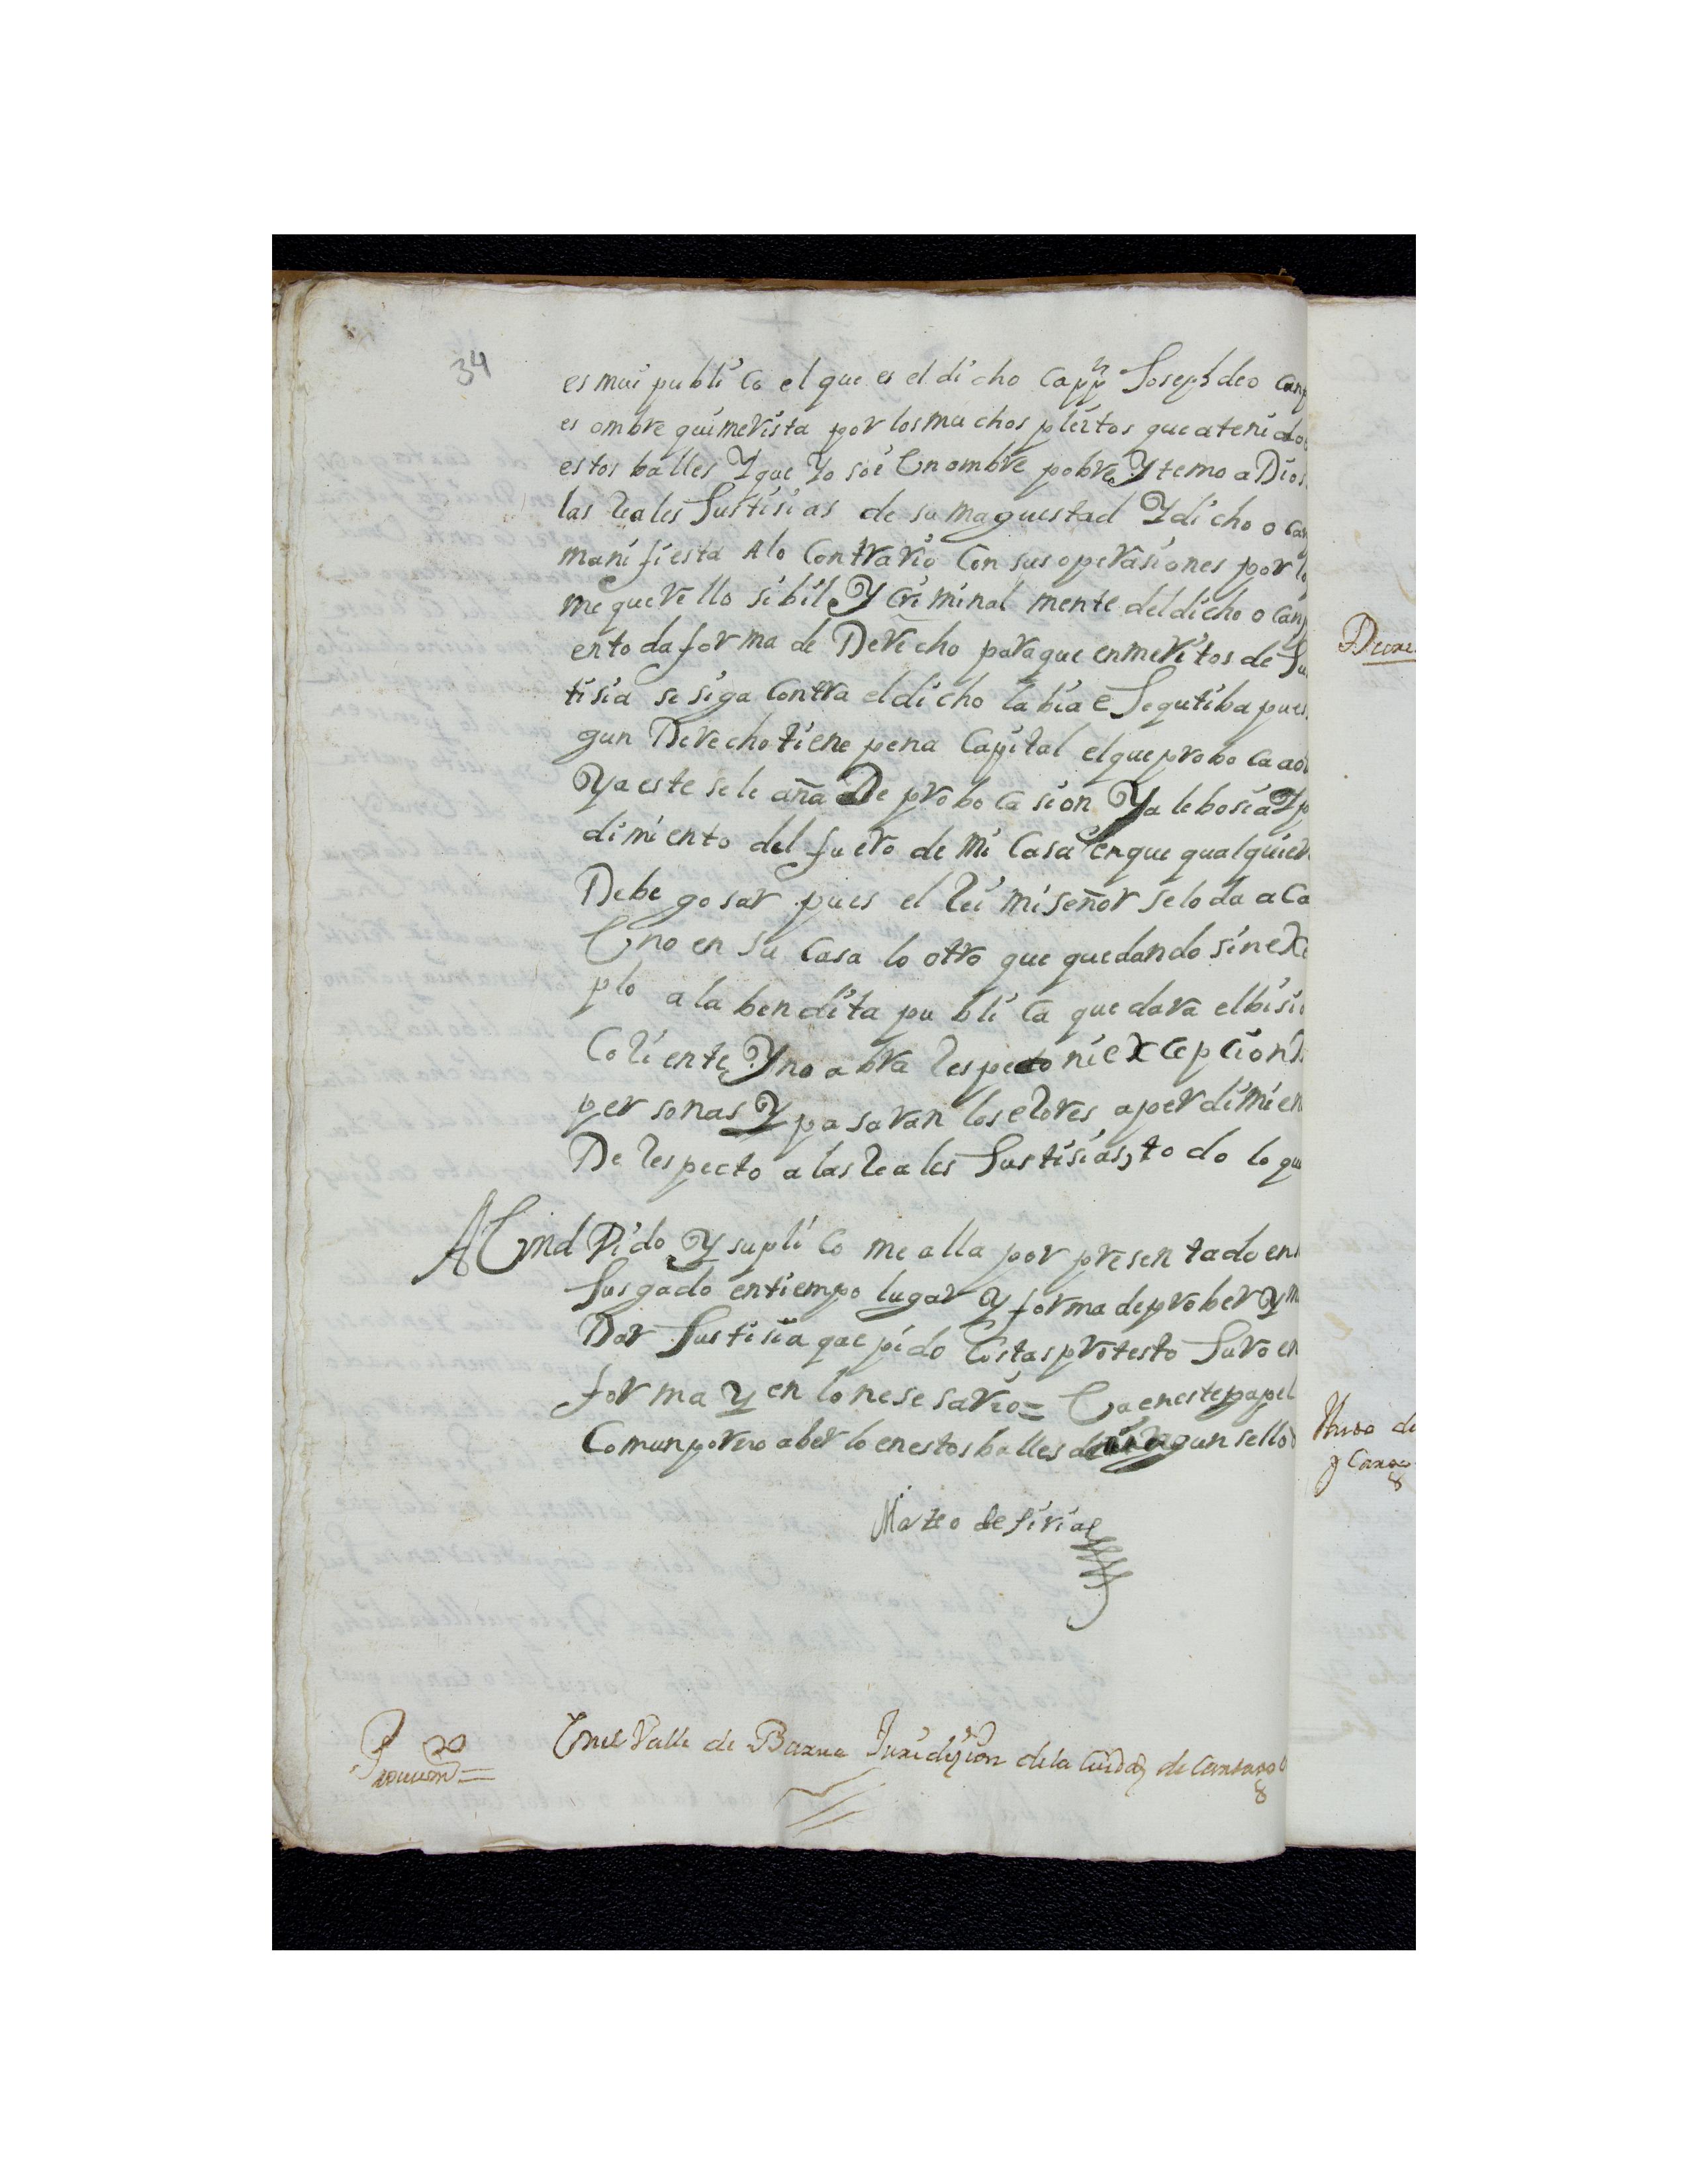 34
es mui publico el que es el dicho Capp.n Joseph de o Camp
es ombre quimerista por los muchos pleitos que a tenido
estos balles Y que Yo soi Un ombre pobre Y temo a Dios
las reales Justisias de su maguestad Y dicho o Can
manifiesta A lo Contrario Con sus operasiones por lo
me querello sibil Y Criminal mente del dicho o Camp
en toda forma de Derecho para que en meritos de Jus
tisia se siga Contra el dicho la bia e Sequtiba pues
gun Derecho tiene pena Capital el que proboca a
Y a este se le añaDe probocasion Y alebosia Y p
dimiento del fuero de mi Casa en que qualquier
Debe gosar pues el rei mi señor se lo da a Ca
Uno en su Casa lo otro que quedando sin exe
plo a la bendita publica quedara el bisio
Coriente Y no abra respecto ni excepcion
personas Y pasaran los erores a perdimien
De respecto a las reales Justisias, todo lo qu
A Umd Pido Y suplico me alla por presentado en
Jusgado en tiempo lugar Y forma de prober Y m
Dar Justisia que pido Costas protesto Juro en
forma Y en lo nesesario = Ba en este papel
Comun por no aber lo en estos balles de ningun sello
Mateo de siria
Prouuon =
En el Valle de Barue Juridizion de la Ciudad de Cartago
Decre